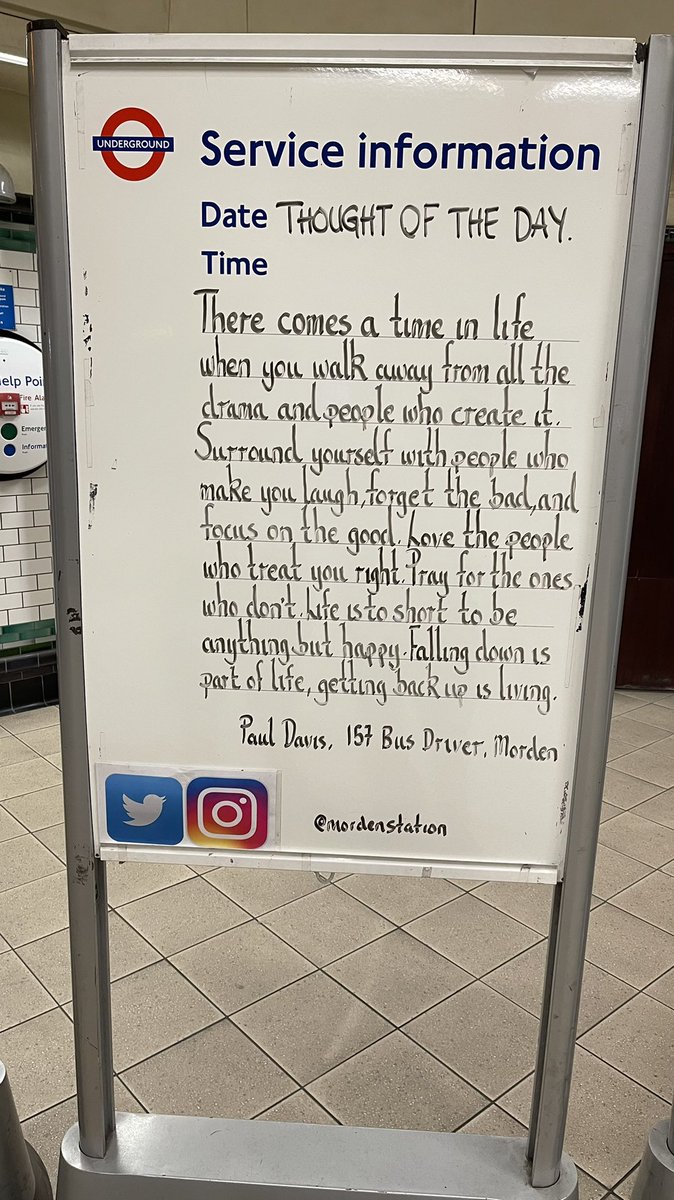 UNDERGROUND
Service information
Date THOUGHT OF THE DAY.
Time
There comes a time in life
when you walk away from all the
drama and people who create it.
Surround yourself with people who
make you laugh, forget the bad, and
focus on the good. Love the people
who treat you right. Pray for the ones
who don't. Life is to short to be
anything but happy. Falling down is
part of life, getting back up is living.
Paul Davis, 157 Bus Driver, Morden
@mordenstation
elp Poin
Fire Ala
Emergen
Informa